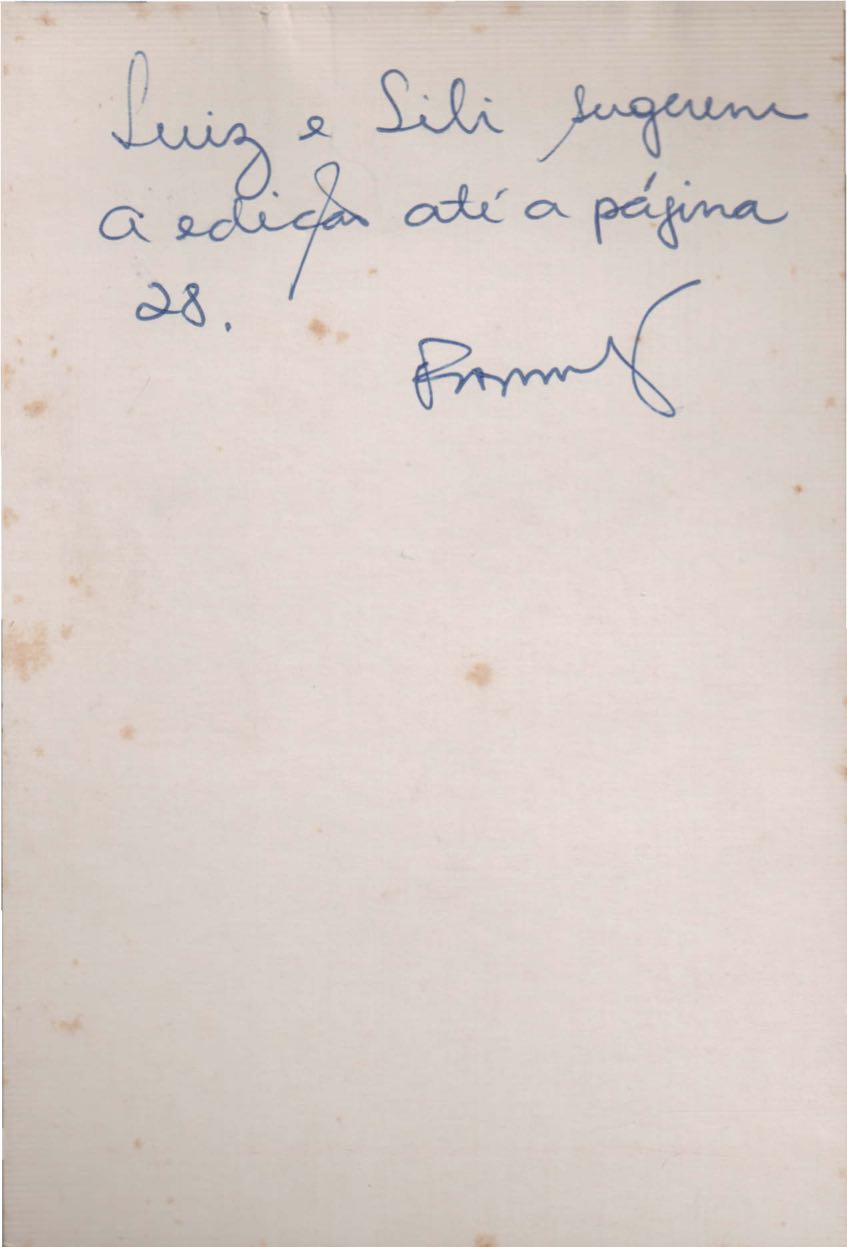 Luiz e Lili sugerem
a edição até a página
28.